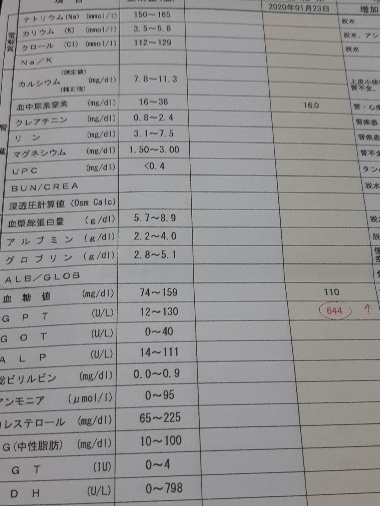 項目
2020年01月23日
増加
電解質
ナトリウム(Na) (mmol/l) 150～165 脱水
カリウム (K) (mmol/l) 3.5～5.8 脱水、アシ
クロール (Cl) (mmol/l) 112～129 脱水
Na/K
カルシウム (測定値) (補正値) (mg/dl) 7.8～11.3 上皮小体 腎不全、
血中尿素窒素 (mg/dl) 16～36 16.0 腎・心疾
クレアチニン (mg/dl) 0.8～2.4 腎疾患
リン (mg/dl) 3.1～7.5 腎疾患
マグネシウム (mg/dl) 1.50～3.00 腎疾患
UPC (mg/dl) <0.4 タン
BUN/CREA 脱水
浸透圧計算値 (Osm Calc) 脱水
血漿総蛋白量 (g/dl) 5.7～8.9
アルブミン (g/dl) 2.2～4.0 脱
グロブリン (g/dl) 2.8～5.1
ALB/GLOB
血糖値 (mg/dl) 74～159 110
GPT (U/L) 12～130 644 ↑
GOT (U/L) 0～40
ALP (U/L) 14～111
総ビリルビン (mg/dl) 0.0～0.9
アンモニア (μmol/l) 0～95
コレステロール (mg/dl) 65～225
G(中性脂肪) (mg/dl) 10～100
GT (IU) 0～4
DH (U/L) 0～798